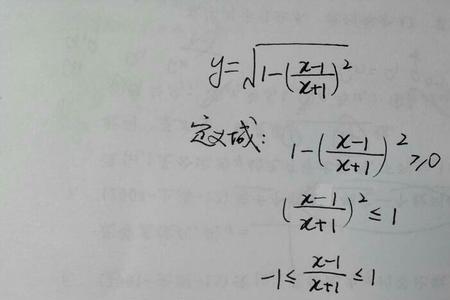 y=√(1-((x-1)/(x+1))²)
定义域: 1-((x-1)/(x+1))²≥0
((x-1)/(x+1))²≤1
-1≤(x-1)/(x+1)≤1